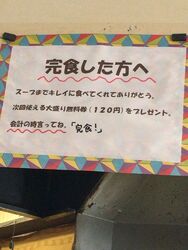 完食した方へ
スープまでキレイに食べてくれてありがとう。
次回使える大盛り無料券（１２０円）をプレゼント。
会計の時言ってね。「完食！」